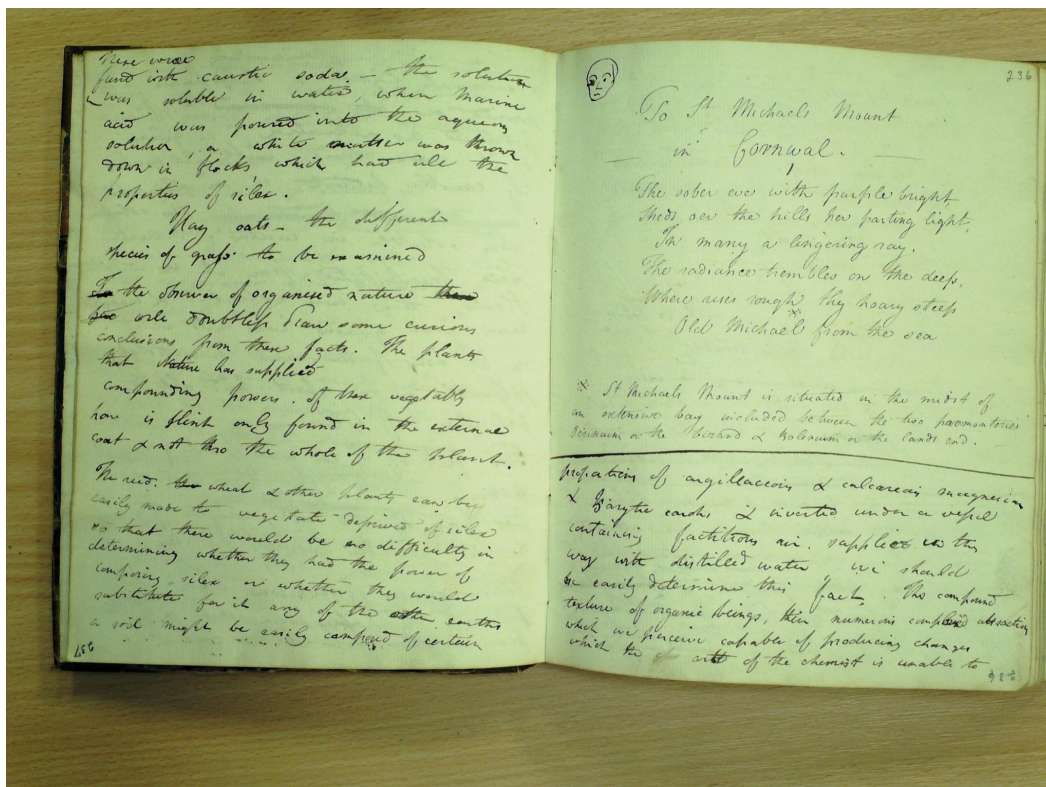 These were
fused with caustic soda. - the solution
was soluble in water, when Marine
acid was poured into the aqueous
solution, a white matter was thrown
down in flocks which had all the
properties of silex.
Hay oats - the different
species of grass to be examined
To the observer of organised nature there
will doubtless draw some curious
conclusions from these facts. The plants
that Nature has supplied
compounding powers. If these vegetably
how is flint only found in the external
coat & not thro the whole of the plant.
The reed. wheat & other plants can be
easily made to vegetate deprived of silex
so that there would be no difficulty in
determining whether they had the power of
composing silex or whether they would
substitute for it any of the other earths
a soil might be easily composed of certain
237
236
To St Michaels Mount
in Cornwal.
The sober eve with purple bright
Sheds oer the hills her parting light,
In many a lingering ray.
The radiance trembles on the deep,
Where rises rough thy hoary steep
Old Michael from the sea
※ St Michaels Mount is situated in the midst of
an extensive bay included between the two promontories
or the Lizard & Bolerium or the Lands end.
proportions of argillaceous & calcareous magnesian
& Barytic earths & inverted under a vessel
containing factitious air. supplied in this
way with distilled water we should
be easily determine this fact. The compound
texture of organic beings, their numerous complexd attractions
which we perceive capable of producing changes
which the art of the chemist is unable to
236